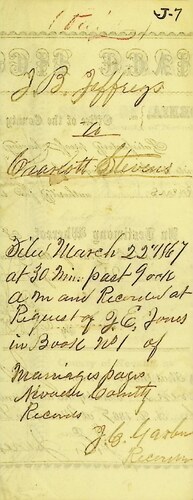 J-7
J. B. Jeffreys
to
Charlott Stevens
Filed March 22d 1867
at 30 Min. past 9 ock
a m and Recorded at
Request of J. C. Jones
in Book No 1 of
Marriages page
Nevada County
Records
Recorder